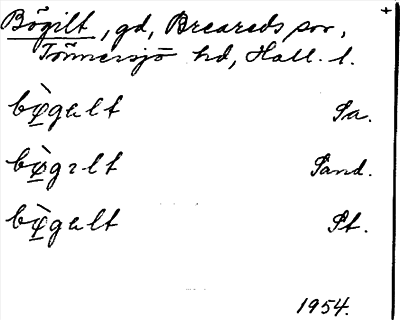 Bögilt, gd, Breareds sor,
Tönnersjö hd, Hall. l.
bø̀galt Sa.
bø̀gɿlt Sand.
bø̀galt St.
1954.